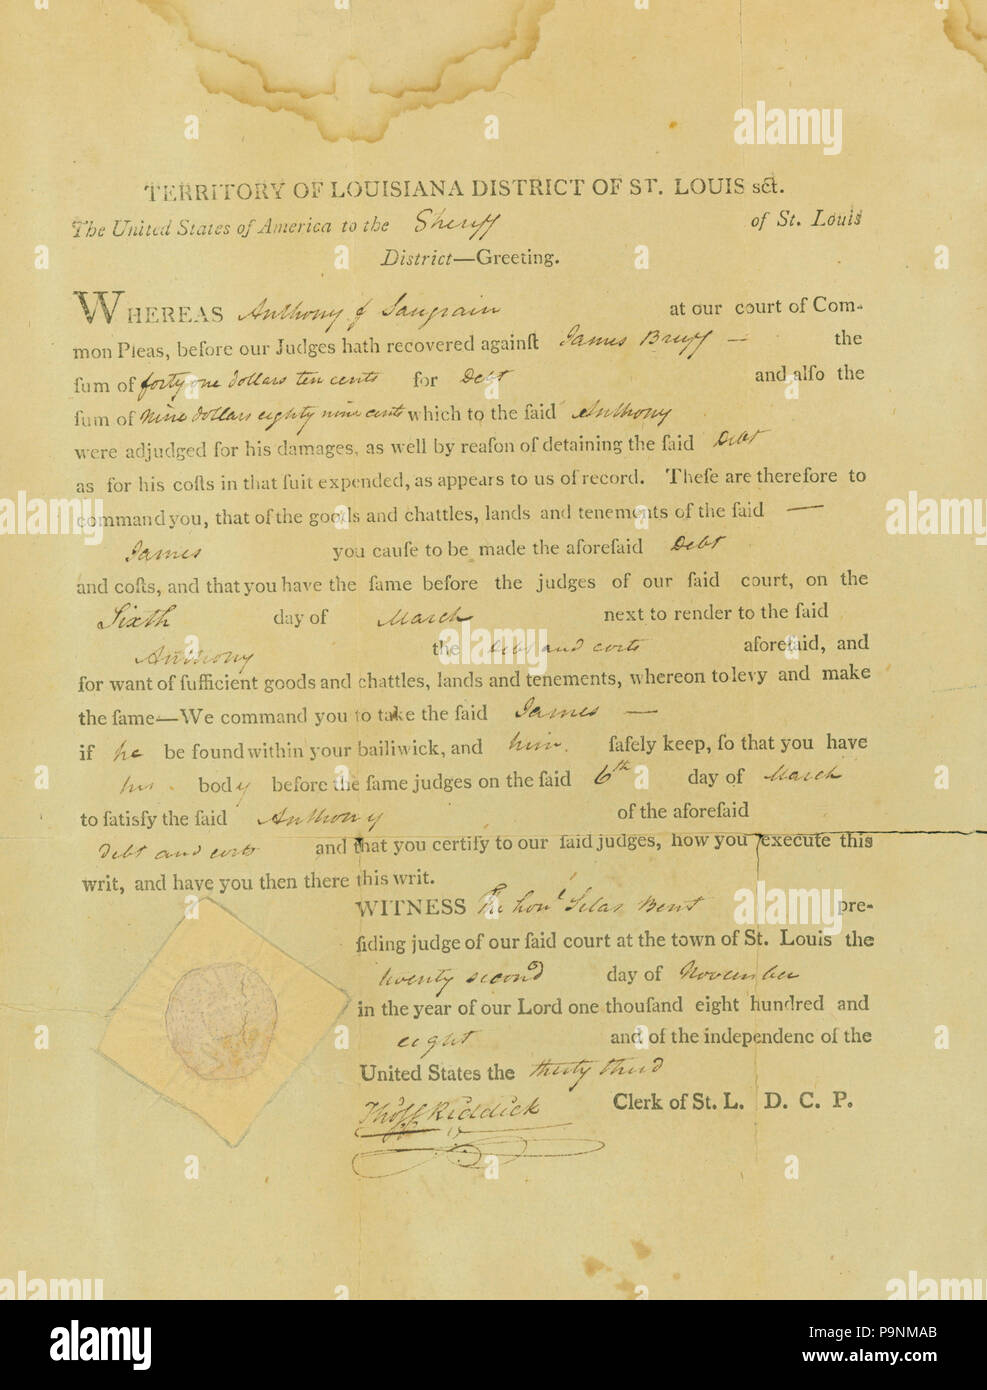 TERRITORY OF LOUISIANA DISTRICT OF ST. LOUIS sct.
The United States of America to the Sheriff of St. Louis
District—Greeting.
WHEREAS Anthony f Saugrain at our court of Com-
mon Pleas, before our Judges hath recovered againſt James Bruff — the
ſum of forty one dollars ten cents for Debt and alſo the
ſum of nine dollars eighty nine cents which to the ſaid Anthony
were adjudged for his damages, as well by reaſon of detaining the ſaid Debt
as for his coſts in that ſuit expended, as appears to us of record. Theſe are therefore to
command you, that of the goods and chattles, lands and tenements of the ſaid —
James you cauſe to be made the aforeſaid Debt
and coſts, and that you have the ſame before the judges of our ſaid court, on the
Sixth day of March next to render to the ſaid
Anthony the Debt and costs aforeſaid, and
for want of ſufficient goods and chattles, lands and tenements, whereon to levy and make
the ſame—We command you to take the ſaid James —
if he be found within your bailiwick, and him. ſafely keep, ſo that you have
his body before the ſame judges on the ſaid 6th day of March
to ſatisfy the ſaid Anthony of the aforeſaid
debt and costs and that you certify to our ſaid judges, how you execute this
writ, and have you then there this writ.
WITNESS The honl Silas Bent pre-
ſiding judge of our ſaid court at the town of St. Louis the
twenty second day of November
in the year of our Lord one thouſand eight hundred and
eight and of the independenc of the
United States the thirty third
Thos F Riddick Clerk of St. L. D. C. P.
alamy
Image ID: P9NMAB
www.alamy.com